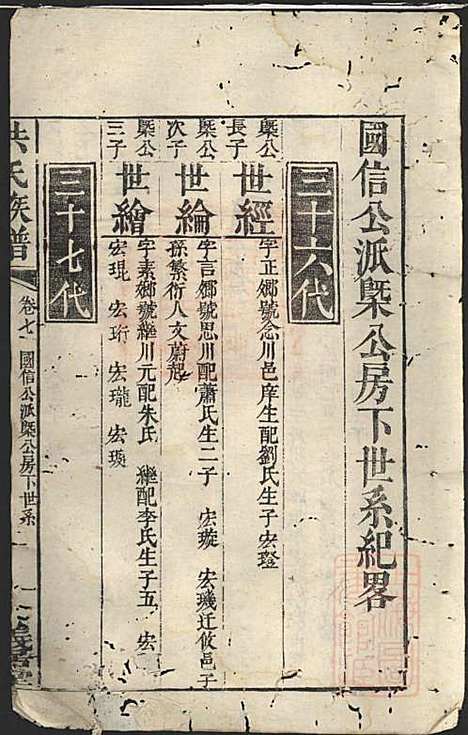 國信公派槩公房下世系紀畧
三十六代
槩公長子
世經
字正鄉號念川邑庠生配劉氏生子宏璒
槩公次子
世綸
字言鄉號思川配蕭氏生二子 宏璇 宏璣迁攸邑子
孫繁衍人文蔚起
槩公三子
世繪
字素鄉號繼川元配朱氏 繼配李氏生子五 宏
宏琨 宏珩 宏瓏 宏璵
三十七代
氏族譜
卷七 國信公派槩公房下世系
一
義堂